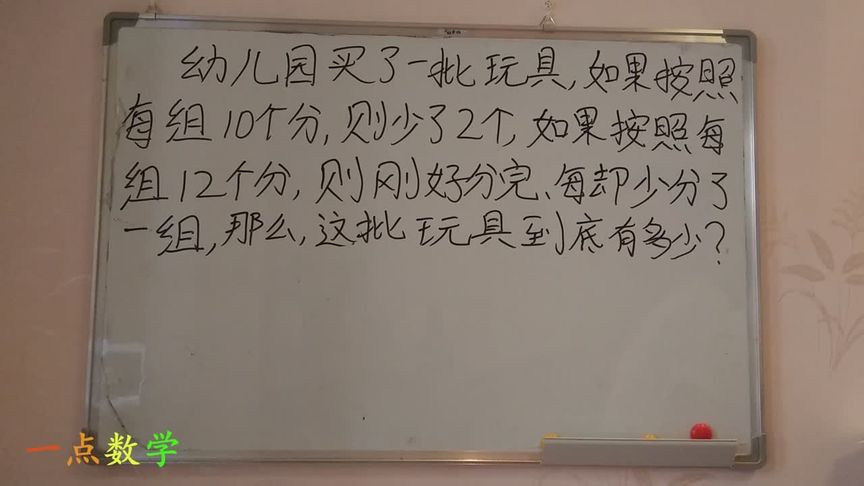 幼儿园买了一批玩具,如果按照
每组10个分,则少了2个,如果按照每
组12个分,则刚好分完、每却少分了
一组,那么,这批玩具到底有多少?
一点数学